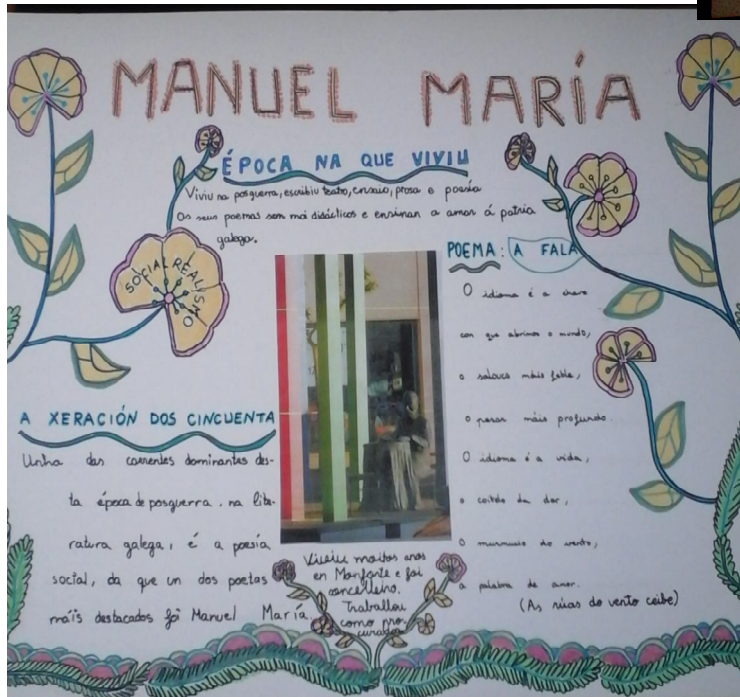 MANUEL MARÍA
ÉPOCA NA QUE VIVIU
Viviu na posguerra, escribiu teatro, ensaio, prosa e poesía
Os seus poemas son moi didácticos e ensinan a amar á patria
galega.
SOCIAL REALISMO
A XERACIÓN DOS CINCUENTA
Unha das correntes dominantes des-
ta época de posguerra, na lite-
ratura galega, é a poesía
social, da que un dos poetas
máis destacados foi Manuel María.
Viviu moitos anos
en Monforte e foi
concelleiro.
Traballou
como pro-
curador
POEMA: A FALA
O idioma é a chave
con que abrimos o mundo,
o salouco máis feble,
o pesar máis profundo.
O idioma é a vida,
o coitelo da dor,
o murmurio do vento,
a palabra de amor.
(As rúas do vento ceibe)